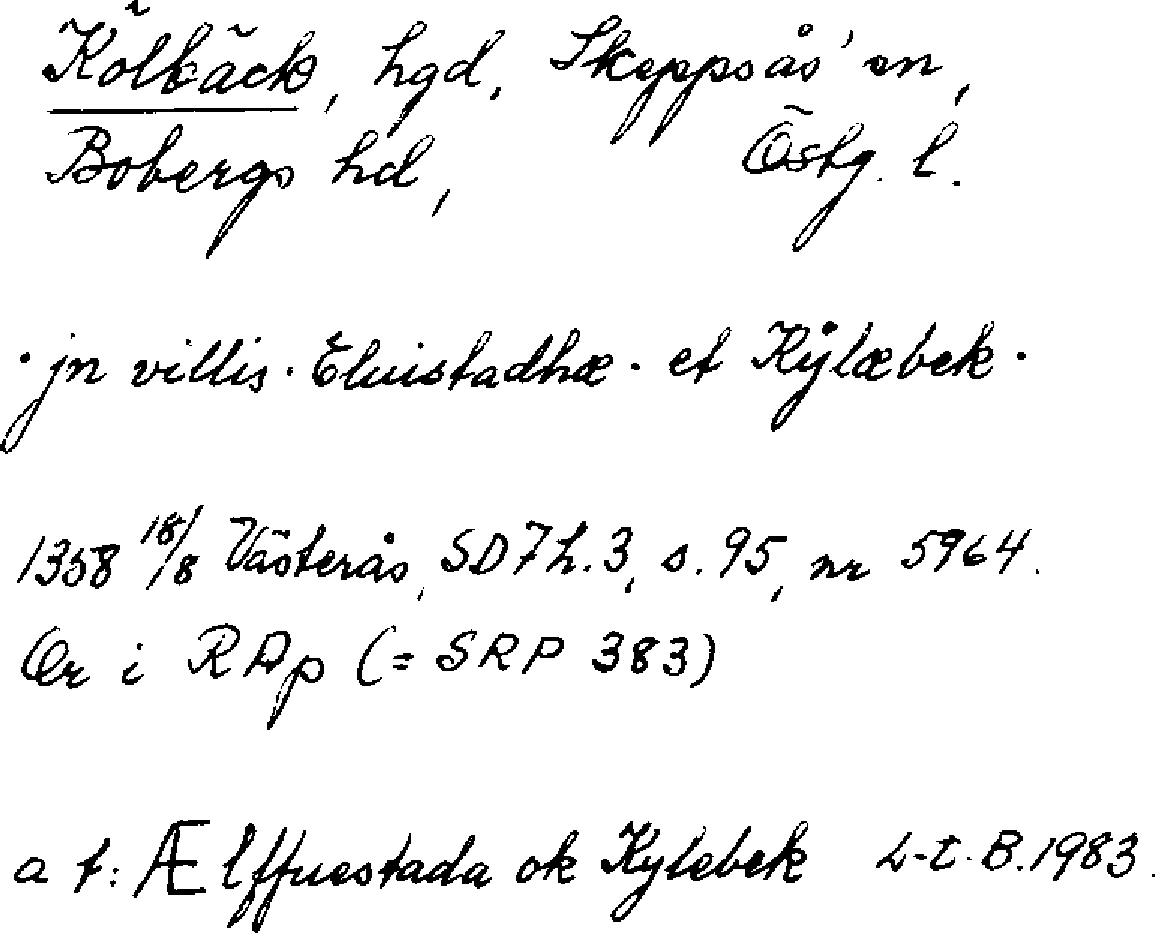 Kölbäck, hgd, Skeppsås' sn,
Bobergs hd, Östg. l.
· jn villis · Eluistadhæ · et Kylæbek ·
1358 18/8 Västerås, SD7 h. 3, s. 95, nr 5964.
Or i RAp (= SRP 383)
a t: Ælffuastada ok Kylebek L-E. B. 1983.